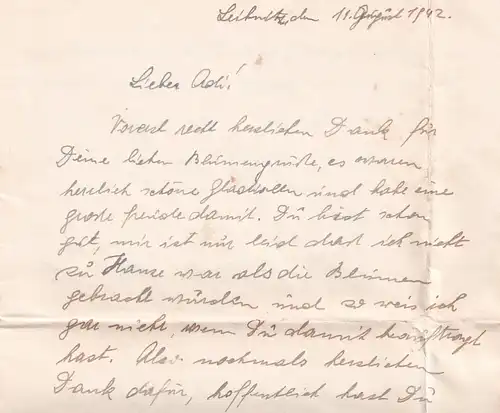 Leibnitz, den 11. August 1942.
Lieber Adi!
Vorerst recht herzlichen Dank für
Deine lieben Blumengrüße, es waren
herrlich schöne Gladiolen und habe eine
große Freude damit. Du bist schon
gut, mir ist nur leid das ich nicht
zu Hause war als die Blumen
gebracht wurden und so weis ich
gar nicht, wem Du damit beauftragt
hast. Also nochmals herzlichen
Dank dafür, hoffentlich hast Du